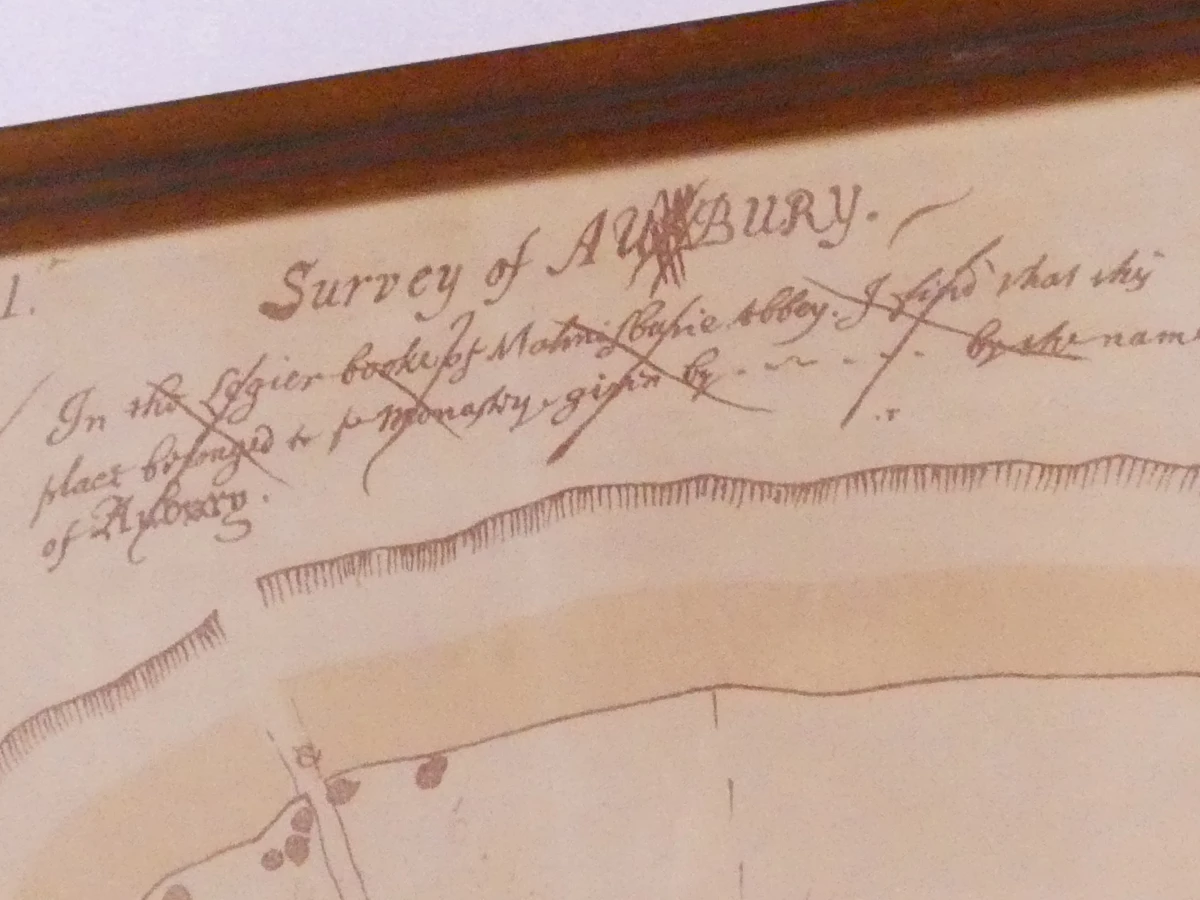 1.
Survey of AUBURY.
In the Legier booke of Malmsburie Abbey. I find that this
place belonged to ye Monastry, given by . . . . by the name
of Aubury.